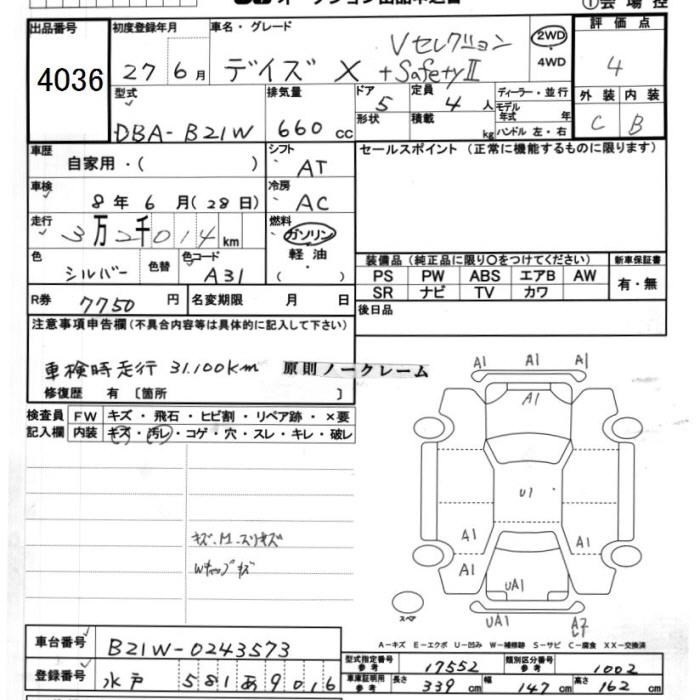 オークション出品申込書
①会場控
出品番号 初度登録年月 車名・グレード 評価点
4036 27年6月 デイズ X Vセレクション +SafetyⅡ 2WD 4WD 4
型式 排気量 ドア 定員 ディーラー・並行 外装 内装
DBA-B21W 660cc 5 4人 モデル年式 年 C B
形状 積載 kg ハンドル 左・右
車歴 シフト セールスポイント(正常に機能するものに限ります)
自家用・( ) AT
車検 冷房
8年6月(28日) AC
走行 燃料
3万2千014km ガソリン
色 色替 色コード 軽油 装備品(純正品に限り○をつけてください) 新車保証書
シルバー A31 ・( ) PS PW ABS エアB AW 有・無
SR ナビ TV カワ
R券 7750円 名変期限 月 日 後日品
注意事項申告欄(不具合内容等は具体的に記入して下さい)
車検時走行 31.100km 原則ノークレーム
修復歴 有〔箇所 〕
検査員 FW キズ・飛石・ヒビ割・リペア跡・×要
記入欄 内装 キズ・汚レ・コゲ・穴・スレ・キレ・破レ
A1 A1 A1
A1
U1
A1 A1
A1
UA1
UA1 A2
スペア
A-キズ E-エクボ U-凹み W-補修跡 S-サビ C-腐食 XX-交換済
車台番号 B21W-0243573
型式指定番号 参考 17552 類別区分番号 参考 1002
登録番号 水戸 581 あ 9016
車庫証明用 参考 長さ 339cm 幅 147cm 高さ 162cm